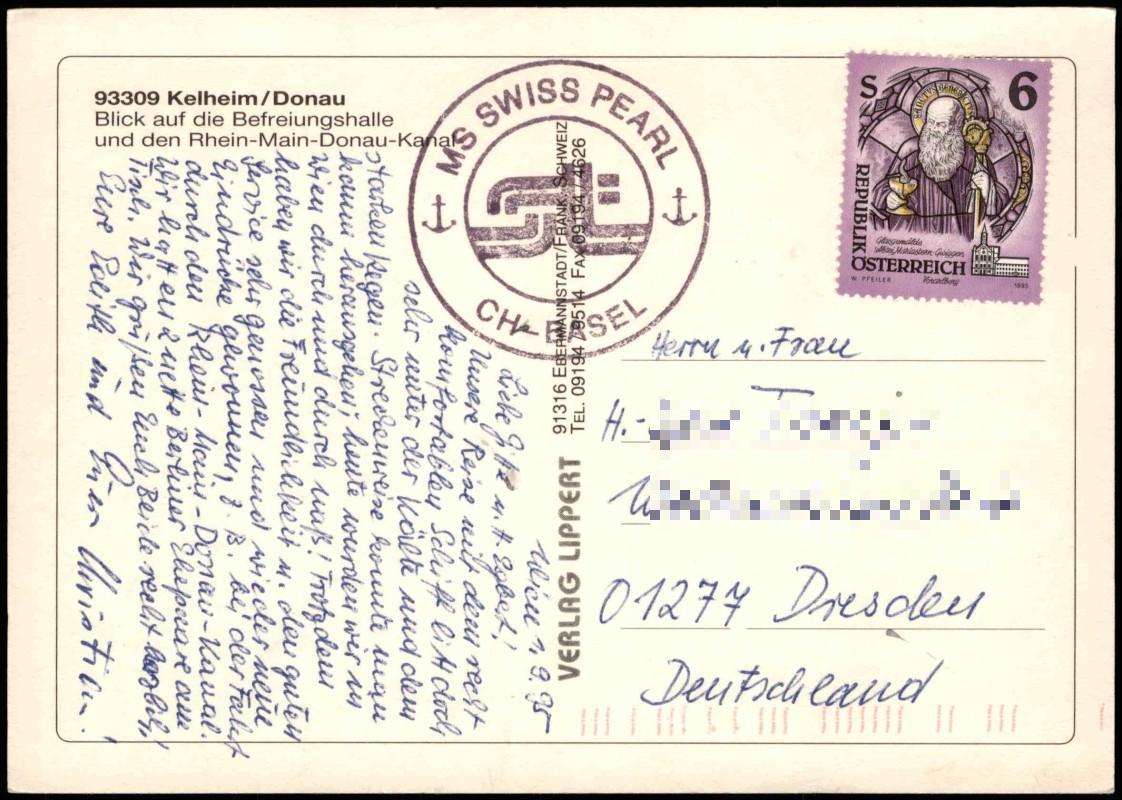 93309 Kelheim/Donau
Blick auf die Befreiungshalle
und den Rhein-Main-Donau-Kanal
MS SWISS PEARL
CH-BASEL
S 6
SANCTUS BENEDICTUS
REPUBLIK
ÖSTERREICH
Glasgemälde
Abtei Mariastern-Gwiggen
Vorarlberg
W. PFEILER
1993
VERLAG LIPPERT
91316 EBERMANNSTADT/FRÄNK. SCHWEIZ
TEL. 09194/9514 FAX 09194/4626
Wien 1.9.95
Liebe Gitte u.
Unsere Reise mit dem recht
komfortablen Schiff litt doch
sehr unter der Kälte und dem
starken Regen. Streckenweise konnte man
kaum herausgehen; heute wurden wir in
Wien durch und durch naß! Trotzdem
haben wir die Freundlichkeit u. den guten
Service sehr genossen und wieder neue
Eindrücke gewonnen, z. B. bei der Fahrt
durch den Rhein-Main-Donau-Kanal.
Wir hatten 2 nette Berliner Ehepaare am
Tisch. Wir grüßen Euch Beide recht herzlich!
Eure Edith und Euer Christian!
Herrn u. Frau
H.-
01277 Dresden
Deutschland